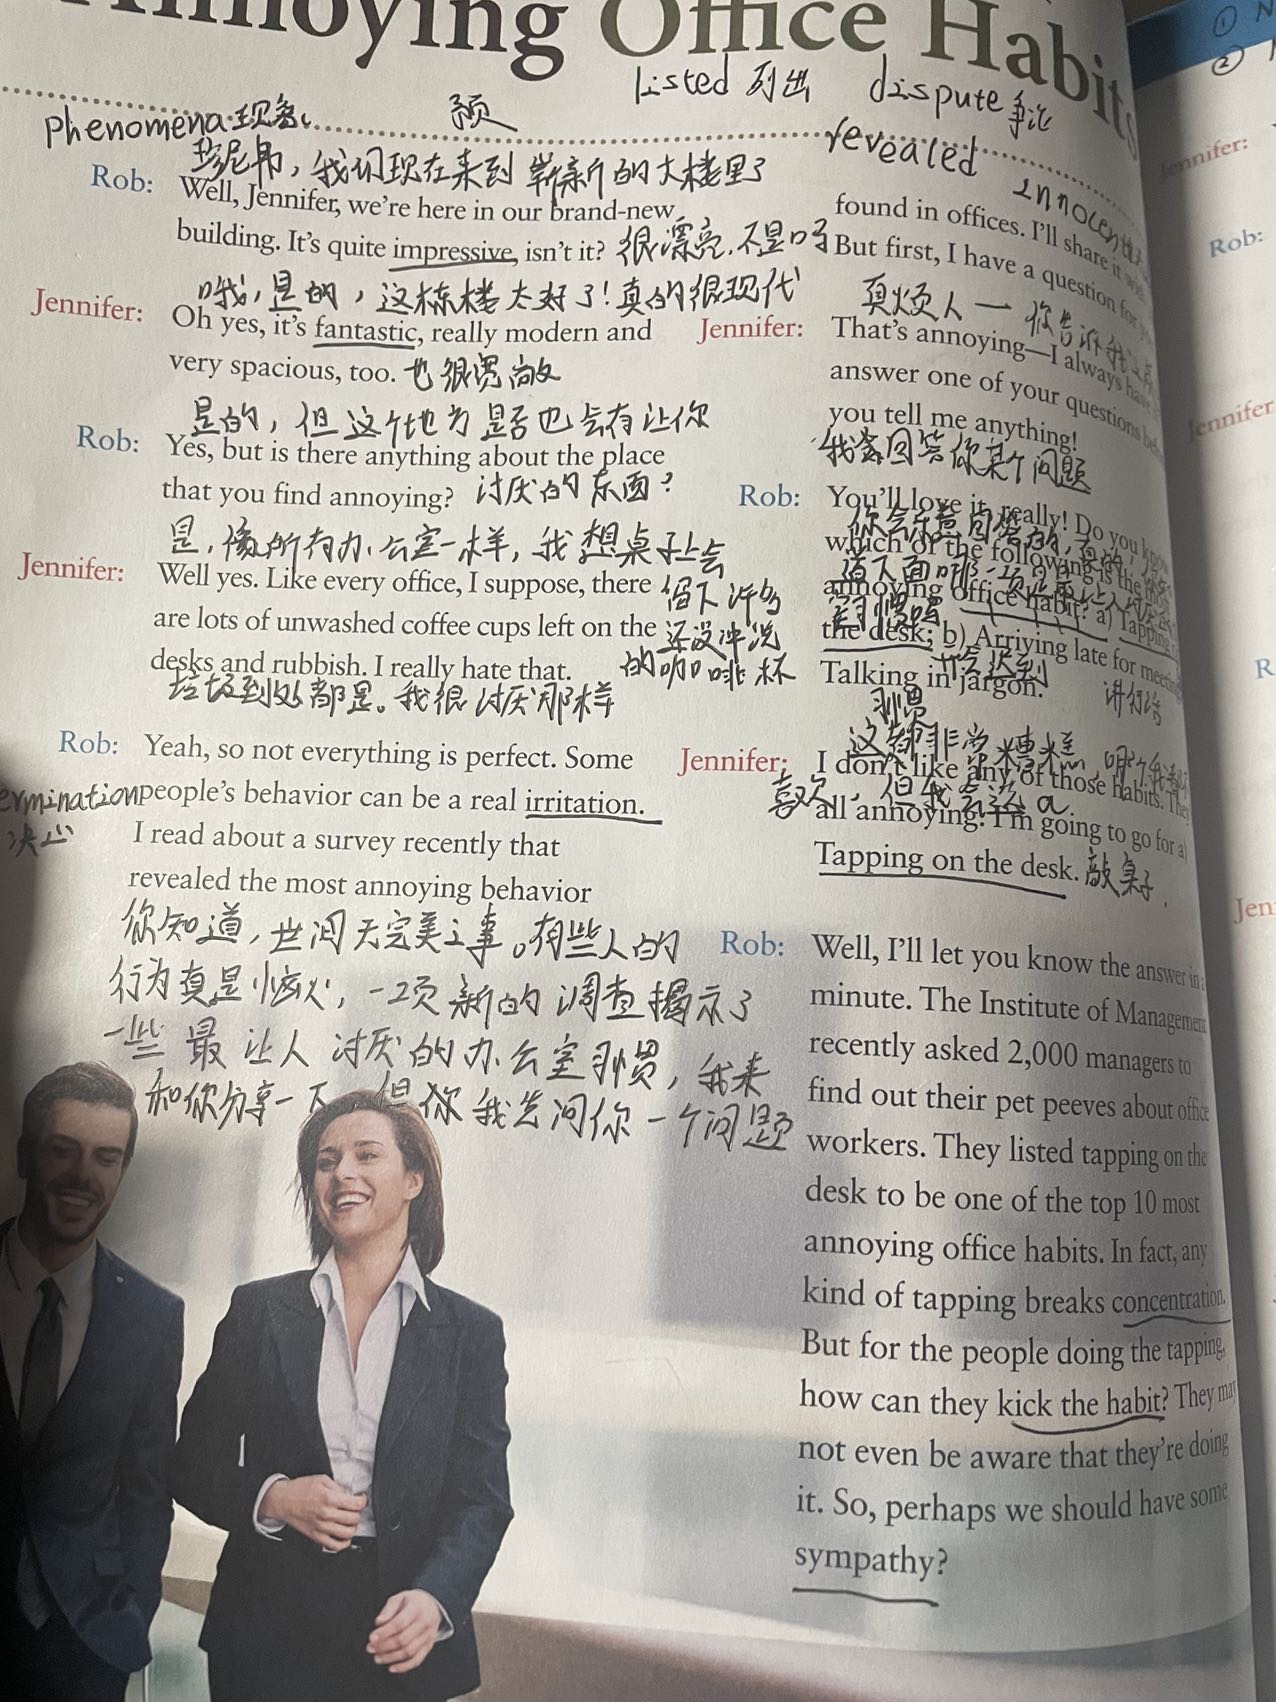 Annoying Office Habits
listed 列出 dispute 争论
Phenomena 现象
预
revealed
珍尼弗，我们现在来到崭新的大楼里了
Rob: Well, Jennifer, we're here in our brand-new
building. It's quite impressive, isn't it? 很漂亮，不是吗
哦，是的，这栋楼太好了！真的很现代
Jennifer: Oh yes, it's fantastic, really modern and
very spacious, too. 也很宽敞
是的，但这个地方是否也会有让你
Rob: Yes, but is there anything about the place
that you find annoying? 讨厌的东西？
是，像所有办公室一样，我想桌子上会
Jennifer: Well yes. Like every office, I suppose, there 留下许多
are lots of unwashed coffee cups left on the 还没冲洗
desks and rubbish. I really hate that. 的咖啡杯
垃圾到处都是。我很讨厌那样
Rob: Yeah, so not everything is perfect. Some
people's behavior can be a real irritation.
决心
I read about a survey recently that
revealed the most annoying behavior
你知道，世间无完美之事。有些人的
行为真是恼火，一项新的调查揭示了
一些最让人讨厌的办公室习惯，我来
和你分享一下，但你我先问你一个问题
found in offices. I'll share it with
But first, I have a question for
真烦人一你告诉我
Jennifer: That's annoying—I always have
answer one of your questions before
you tell me anything!
我回答你某个问题
Rob: You'll love it, really! Do you know
which of the following is the most
annoying office habit? a) Tapping
习惯吗
the desk; b) Arriving late for meetings
开会迟到
Talking in jargon. 讲行话
习惯
这都非常糟糕，哪个我都
Jennifer: I don't like any of those habits. They
喜欢，但我会选a
all annoying. I'm going to go for a)
Tapping on the desk. 敲桌子.
Rob: Well, I'll let you know the answer in a
minute. The Institute of Management
recently asked 2,000 managers to
find out their pet peeves about office
workers. They listed tapping on the
desk to be one of the top 10 most
annoying office habits. In fact, any
kind of tapping breaks concentration.
But for the people doing the tapping,
how can they kick the habit? They may
not even be aware that they're doing
it. So, perhaps we should have some
sympathy?
① N
②
Jennifer:
Rob:
Jennifer
R
Jen